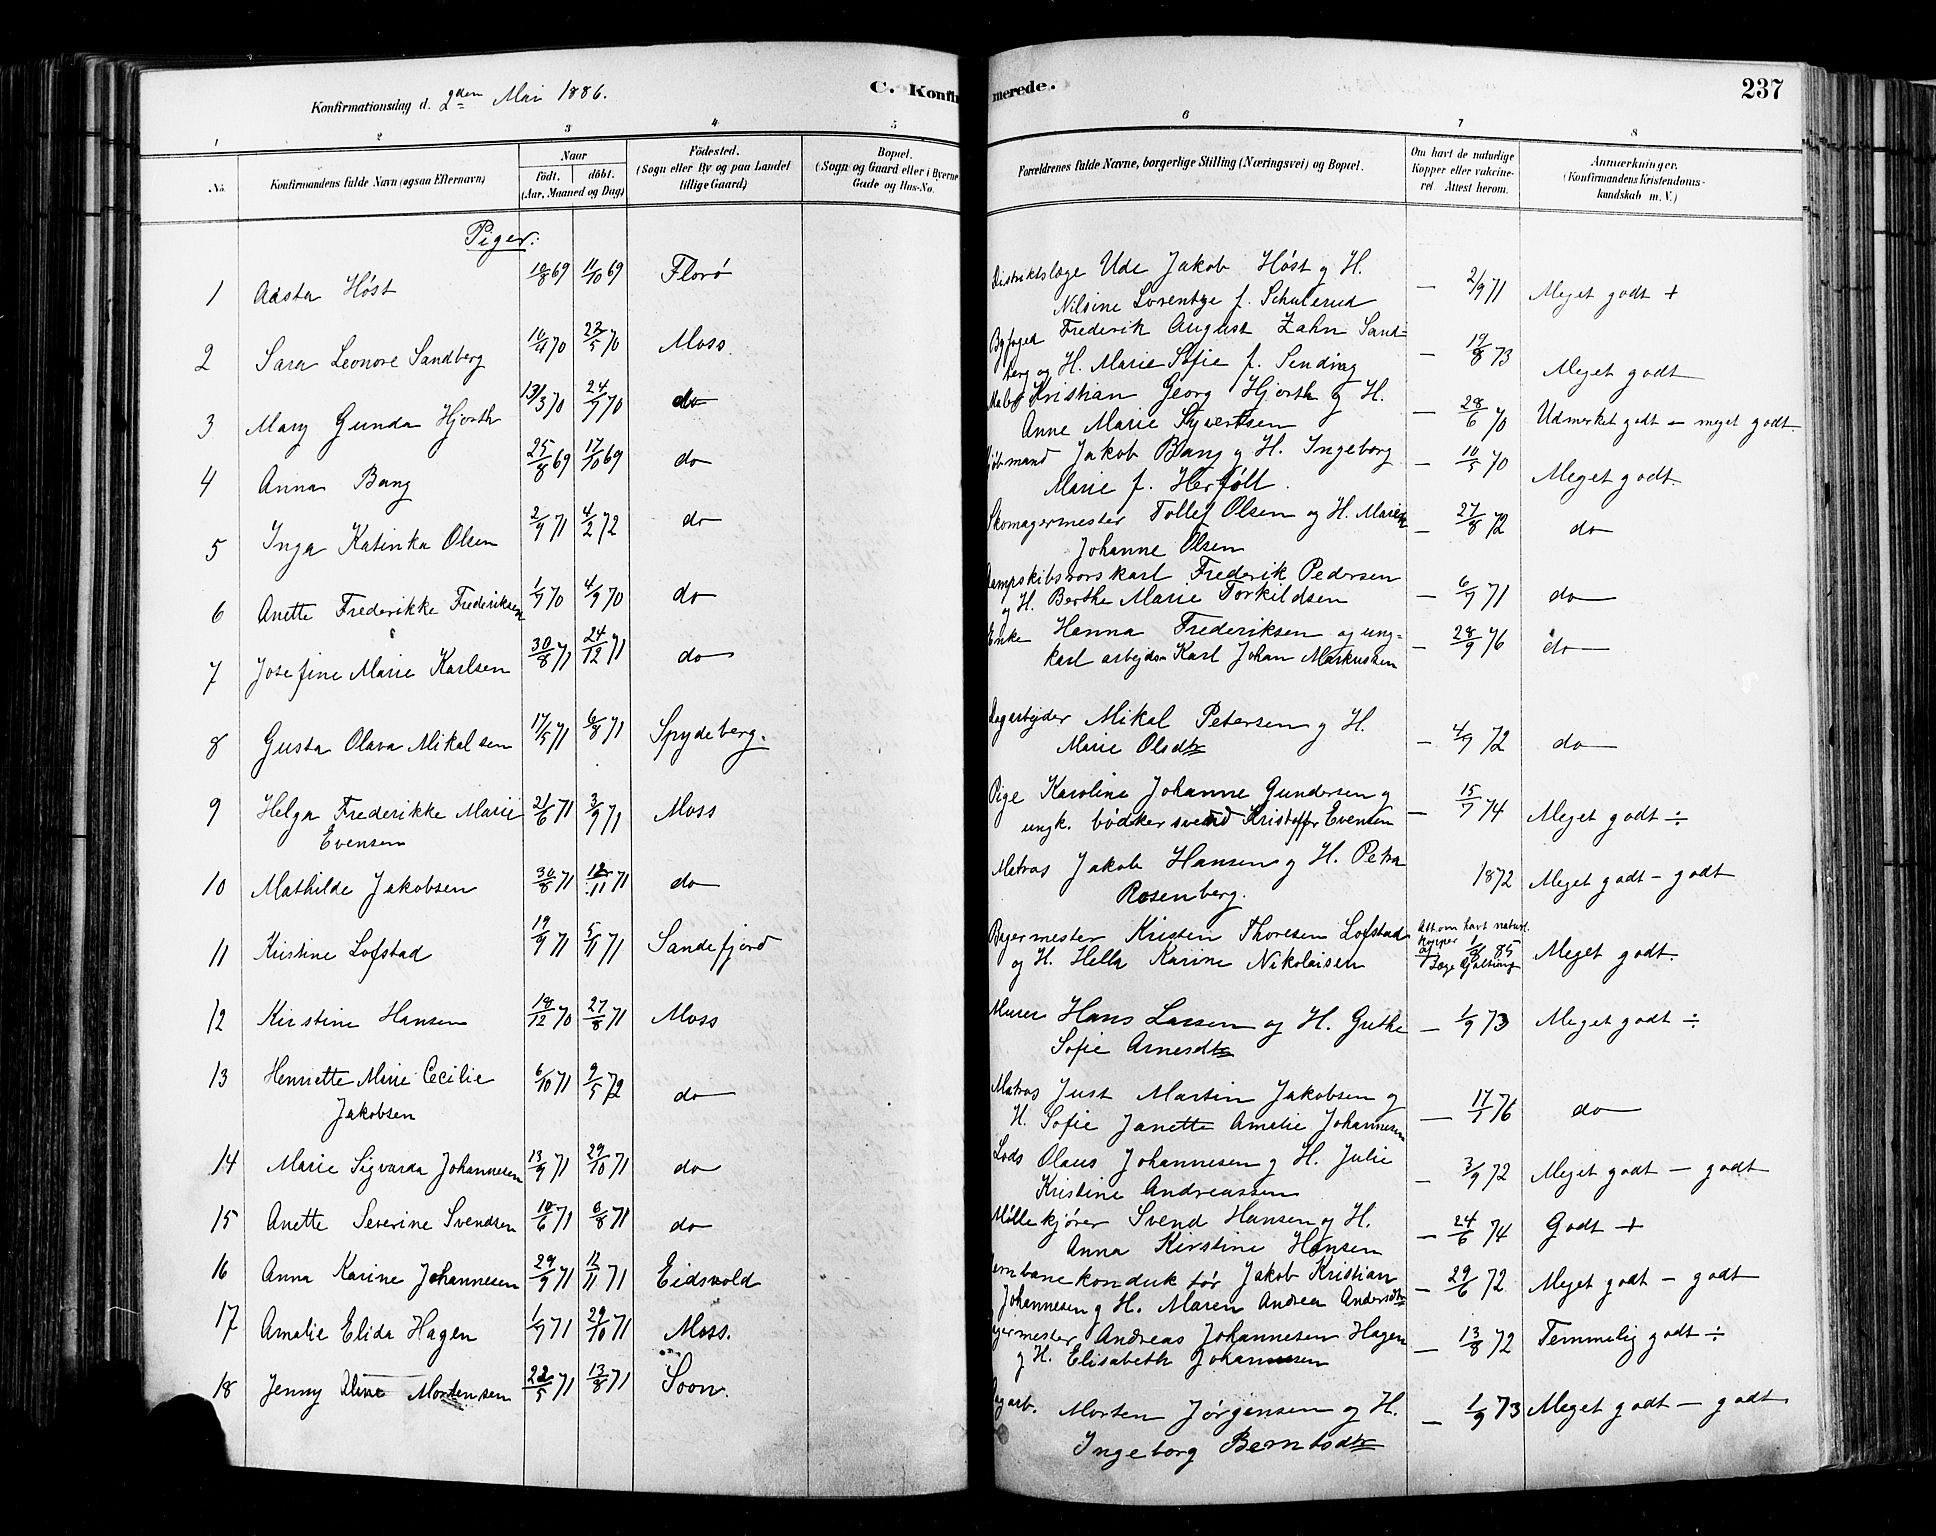 Konfirmationsdag d. 2den Mai 1886.
C. Konfir
merede.
237
1 2 3 4 5 6 7 8
No.
Konfirmandens fulde Navn (ogsaa Efternavn)
Naar
födt. döbt.
(Aar, Maaned og Dag)
Födested.
(Sogn eller By og paa Landet
tillige Gaard)
Bopæl.
(Sogn og Gaard eller i Byerne
Gade og Hus-No.
Forældrenes fulde Navne, borgerlige Stilling (Næringsvei) og Bopæl.
Om havt de naturlige
Kopper eller vakcine-
ret Attest herom.
Anmærkninger.
(Konfirmandens Kristendoms-
kundskab m. V.)
Piger:
1 Aasta Höst 10/8 69 11/10 69 Florö Distriktslæge Ude Jakob Höst og H.
Nilsine Lorentze f. Schulerud — 2/9 71 Meget godt +
2 Sara Leonore Sandberg 10/4 70 22/5 70 Moss Byfoged Frederik August Zahn Sand-
berg og H. Marie Sofie f. Sending — 19/8 73 Meget godt
3 Mary Gunda Hjorth 13/3 70 24/7 70 do Kristian Georg Hjorth og H.
Anne Marie Syvertsen — 28/6 70 Udmerket godt – meget godt.
4 Anna Bang 25/8 69 17/10 69 do Jakob Bang og H. Ingeborg
Marie f. Herföll. — 10/5 70 Meget godt.
5 Inga Katinka Olsen 2/9 71 4/2 72 do Skomagermester Tollef Olsen og H. Maren
Johanne Olsen — 27/8 72 do
6 Anette Frederikke Frederiksen 1/7 70 4/9 70 do Frederik Pedersen
og H. Berthe Marie Torkildsen — 6/7 71 do
7 Josefine Marie Karlsen 30/8 71 24/12 71 do Enke Hanna Frederiksen og ung-
karl arbejdsm Karl Johan Markussen — 28/9 76 do
8 Gusta Olava Mikalsen 17/5 71 6/8 71 Spydeberg. Dagarbejder Mikal Petersen og H.
Marie Olsdtr — 4/9 72 do
9 Helga Frederikke Marie 21/6 71 3/9 71 Moss Pige Karoline Johanne Gundersen og
Evensen ungk. bödkersvend Kristoffer Evensen — 15/7 74 Meget godt ÷
10 Mathilde Jakobsen 30/8 71 12/11 71 do Matros Jakob Hansen og H. Petra
Rosenberg. 1872 Meget godt – godt
11 Kristine Lofstad 19/9 71 5/11 71 Sandefjord Bagermester Kristen Thoresen Lofstad
og H. Hella Karine Nikolaisen Att om havt naturl.
Kopper 85
Meget godt.
12 Kirstine Hansen 18/12 70 27/8 71 Moss Murer Hans Larsen og H. Grethe
Sofie Arnesdtr — 1/9 73 Meget godt ÷
13 Henriette Marie Cecilie 6/10 71 9/5 72 do Matros Just Martin Jakobsen og
Jakobsen H. Sofie Janette Amalie Johannesen — 17/7 76 do
14 Marie Sigvarda Johannesen 13/9 71 29/10 71 do Lods Olaus Johannesen og H. Julie
Kristine Andreassen — 3/9 72 Meget godt – godt
15 Anette Severine Svendsen 10/6 71 6/8 71 do Möllekjörer Svend Hansen og H.
Anna Kirstine Hansen — 24/6 74 Godt +
16 Anna Karine Johannesen 29/9 71 12/11 71 Eidsvold Jernbanekonduktör Jakob Kristian
Johannesen og H. Maren Andrea Andersdtr — 29/6 72 Meget godt – godt
17 Amalie Elida Hagen 1/7 71 29/10 71 Moss. Andreas Johannesen Hagen
og H. Elisabeth Johannesen — 13/8 72 Temmelig godt ÷
18 Jenny Mortensen 22/5 71 13/8 71 Soon. Dagarb. Morten Jörgensen og H.
Ingeborg Berntsdtr — 1/9 73 Meget godt – godt